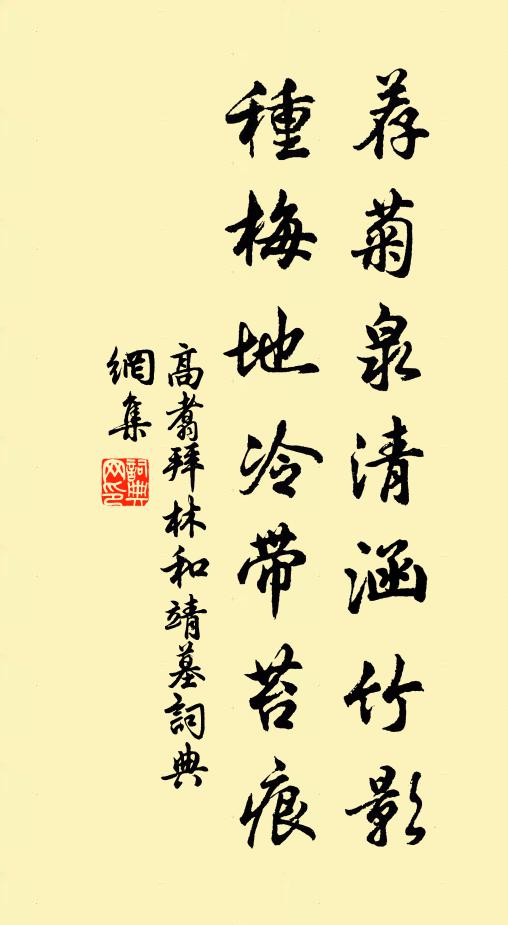 荐菊泉清涵竹影
種梅地冷带苔痕
高翥拜林和靖墓詞典
網集
詞典
网印